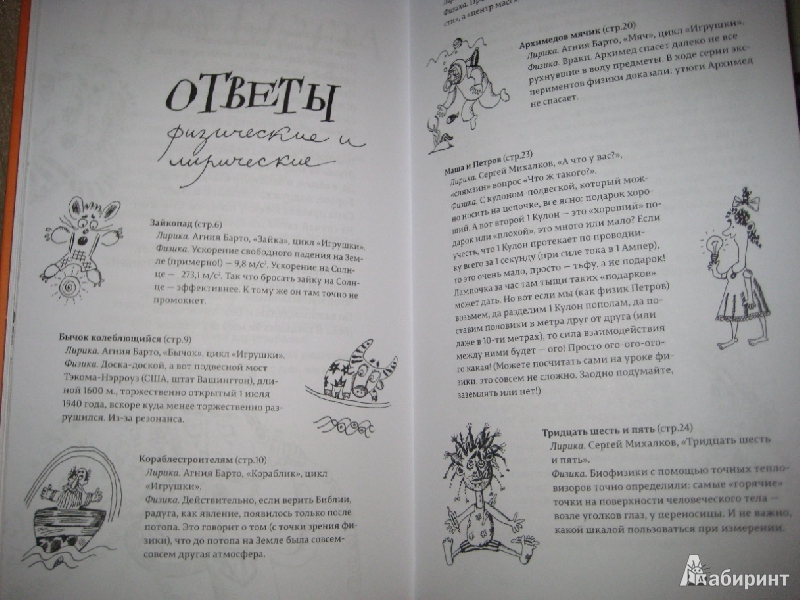 ОТВЕТЫ
физические и
лирические
Зайкопад (стр.6)
Лирика. Агния Барто, «Зайка», цикл «Игрушки».
Физика. Ускорение свободного падения на Зем-
ле (примерно!) — 9,8 м/с². Ускорение на Солн-
це — 273,1 м/с². Так что бросать зайку на Солн-
це — эффективнее. К тому же он там точно не
промокнет.
Бычок колеблющийся (стр.9)
Лирика. Агния Барто, «Бычок», цикл «Игрушки».
Физика. Доска-доской, а вот подвесной мост
Тэкома-Нэрроуз (США, штат Вашингтон), дли-
ной 1600 м., торжественно открытый 1 июля
1940 года, вскоре куда менее торжественно раз-
рушился. Из-за резонанса.
Кораблестроителям (стр.10)
Лирика. Агния Барто, «Кораблик», цикл
«Игрушки».
Физика. Действительно, если верить Библии,
радуга, как явление, появилось только после
потопа. Это говорит о том (с точки зрения фи-
зики), что до потопа на Земле была совсем-
совсем другая атмосфера.
сти», а «центр масс
Архимедов мячик (стр.20)
Лирика. Агния Барто, «Мяч», цикл «Игрушки».
Физика. Враки. Архимед спасет далеко не все
рухнувшие в воду предметы. В ходе серии экс-
периментов физики доказали, утюги Архимед
не спасает.
Маша и Петров (стр.23)
Лирика. Сергей Михалков, «А что у вас?»,
«слямзин» вопрос «Что ж такого?».
Физика. С кулоном подвеской, который мож-
но носить на цепочке, все ясно: подарок хоро-
ший. А вот второй 1 Кулон — это «хороший» по-
дарок или «плохой», это много или мало? Если
учесть, что 1 Кулон протекает по проводни-
ку всего за 1 секунду (при силе тока в 1 Ампер),
то это очень мало, просто — тьфу, а не подарок!
Лампочка за час там тыщи таких «подарков»
может дать. Но вот если мы (как физик Петров)
возьмем, да разделим 1 Кулон пополам, да по-
ставим половинки в метра друг от друга (или
даже в 10-ти метрах), то сила взаимодействия
между ними будет — ого! Просто ого-ого-ого-
го какая! (Можете посчитать сами на уроке фи-
зики, это совсем не сложно. Заодно подумайте,
заземлять или нет!)
Тридцать шесть и пять (стр.24)
Лирика. Сергей Михалков, «Тридцать шесть
и пять».
Физика. Биофизики с помощью точных тепло-
визоров точно определили: самые «горячие»
точки на поверхности человеческого тела —
возле уголков глаз, у переносицы. И не важно,
какой шкалой пользоваться при измерении.
Лабиринт